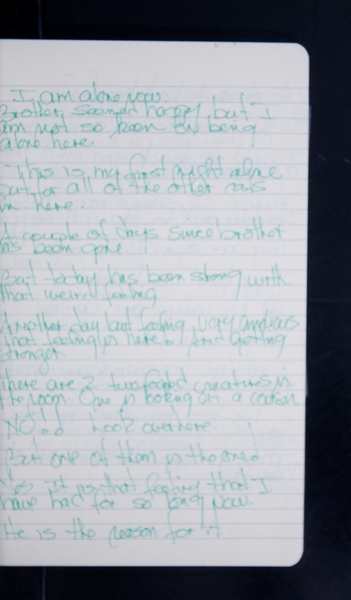 I am alone now.
Brother seemed happy but I
am not so keen on being
alone here.
This is my first night alone
but for all of the other cats
in here.
A couple of days since brother
has been gone.
But today has been strong with
that weird feeling
Another day but feeling very anxious
that feeling is here & and getting
stronger.
There are 2 two footed creatures in
the room. One is looking at a cousin
NO!! Look over here.
But one of them is the one!
Yes it is that feeling that I
have had for so long now.
He is the reason for it